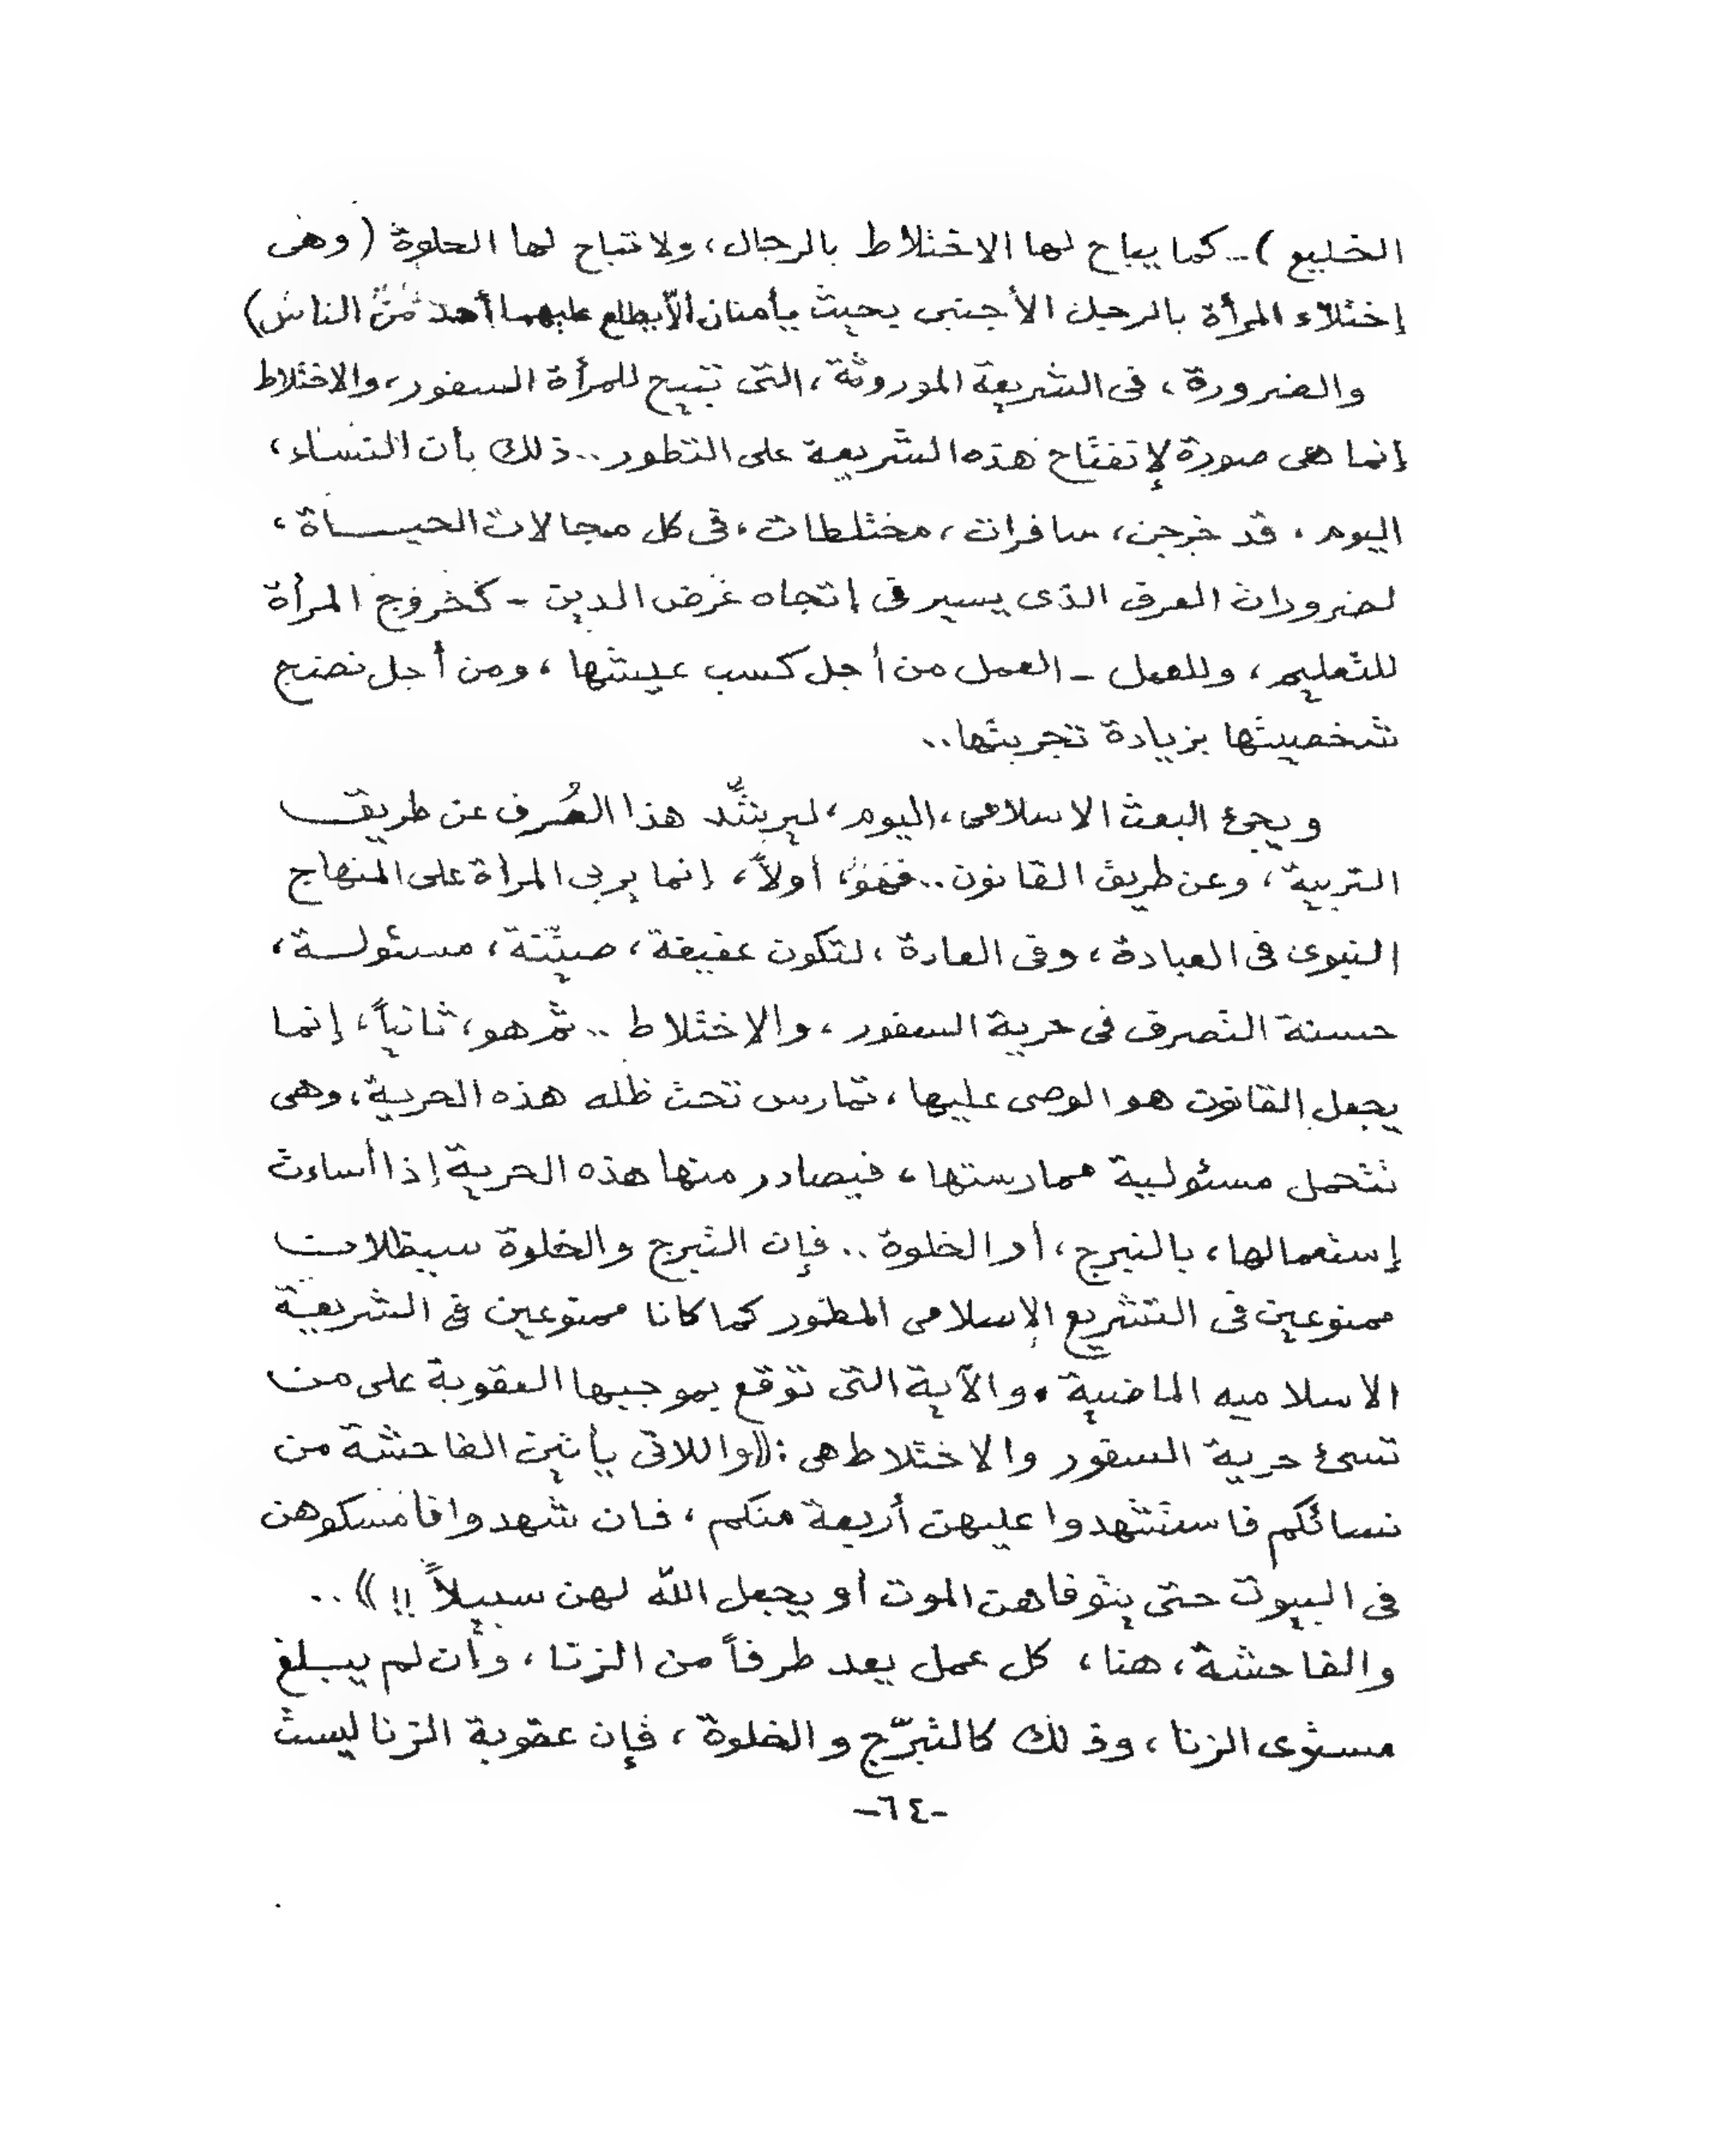 الخليع ).. كما يباح لها الاختلاط بالرجال، ولا تباح لها الخلوة (وهى
إختلاء المرأة بالرجل الأجنبى بحيث يأمنان ألاّ يطلع عليهما أحد من الناس)
والضرورة، فى الشريعة الموروثة، التى تبيح للمرأة السفور، والاختلاط
إنما هى صورة لإنفتاح هذه الشريعة على التطور.. ذلك بأن النساء،
اليوم، قد خرجن، سافرات، مختلطات، فى كل مجالات الحيـــاة،
لضرورات العرف الذى يسير فى إتجاه غرض الدين - كخروج المرأة
للتعليم، وللعمل - العمل من أجل كسب عيشها، ومن أجل نضج
شخصيتها بزيادة تجربتها..
ويجئ البعث الاسلامى، اليوم، ليرشّد هذا العُرف عن طريق
التربية، وعن طريق القانون.. فهو، أولاً، إنما يربى المرأة على المنهاج
النبوى فى العبادة، وفى العادة، لتكون عفيفة، صيّنة، مسئولــة،
حسنة التصرف فى حرية السفور، والإختلاط.. ثم هو، ثانياً، إنما
يجعل القانون هو الوصى عليها، تمارس تحت ظله هذه الحرية، وهى
تتحمل مسئولية ممارستها، فيصادر منها هذه الحرية إذا أساءت
إستعمالها، بالتبرج، أو الخلوة.. فإن التبرج والخلوة سيظلان
ممنوعين فى التشريع الإسلامى المطور كما كانا ممنوعين فى الشريعة
الاسلاميه الماضية. والآية التى توقع بموجبها العقوبة على من
تسئ حرية السفور والاختلاط هى: ((واللاتى يأتين الفاحشة من
نسائكم فاستشهدوا عليهن أربعة منكم، فان شهدوا فأمسكوهن
فى البيوت حتى يتوفاهن الموت أو يجعل الله لهن سبيلاً !!))..
والفاحشة، هنا، كل عمل يعد طرفاً من الزنا، وأن لم يبـلغ
مستوى الزنا، وذلك كالتبرّج والخلوة، فإن عقوبة الزنا ليست
-٦٤-